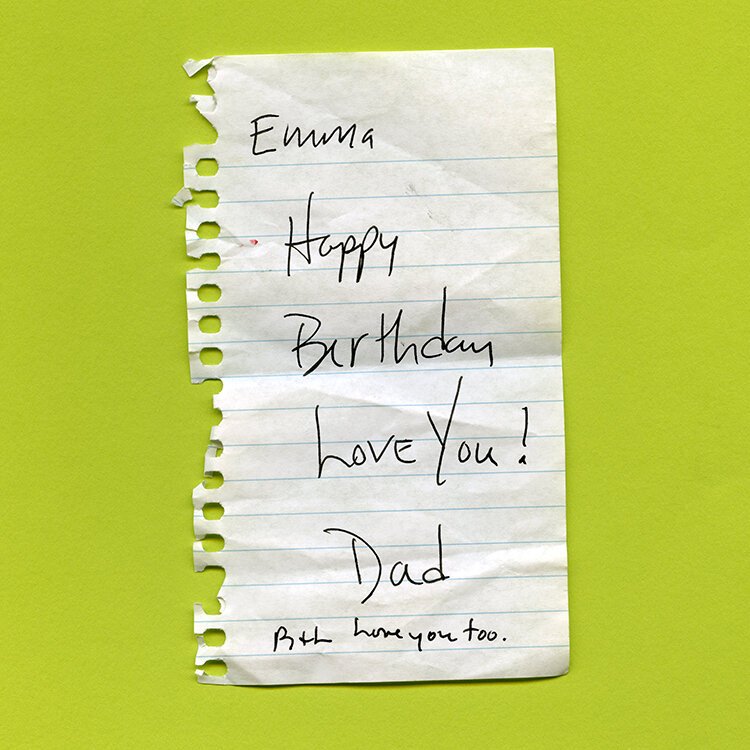 Emma
Happy
Birthday
Love You!
Dad
love you too.